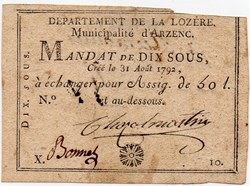 DÉPARTEMENT DE LA LOZÈRE.
Municipalité d'ARZENC.
MANDAT DE DIX SOUS,
Créé le 31 Août 1792,
à échanger pour Assig. de 50 l.
N.º et au-dessous.
DIX SOUS.
Bonnet
X. 10.